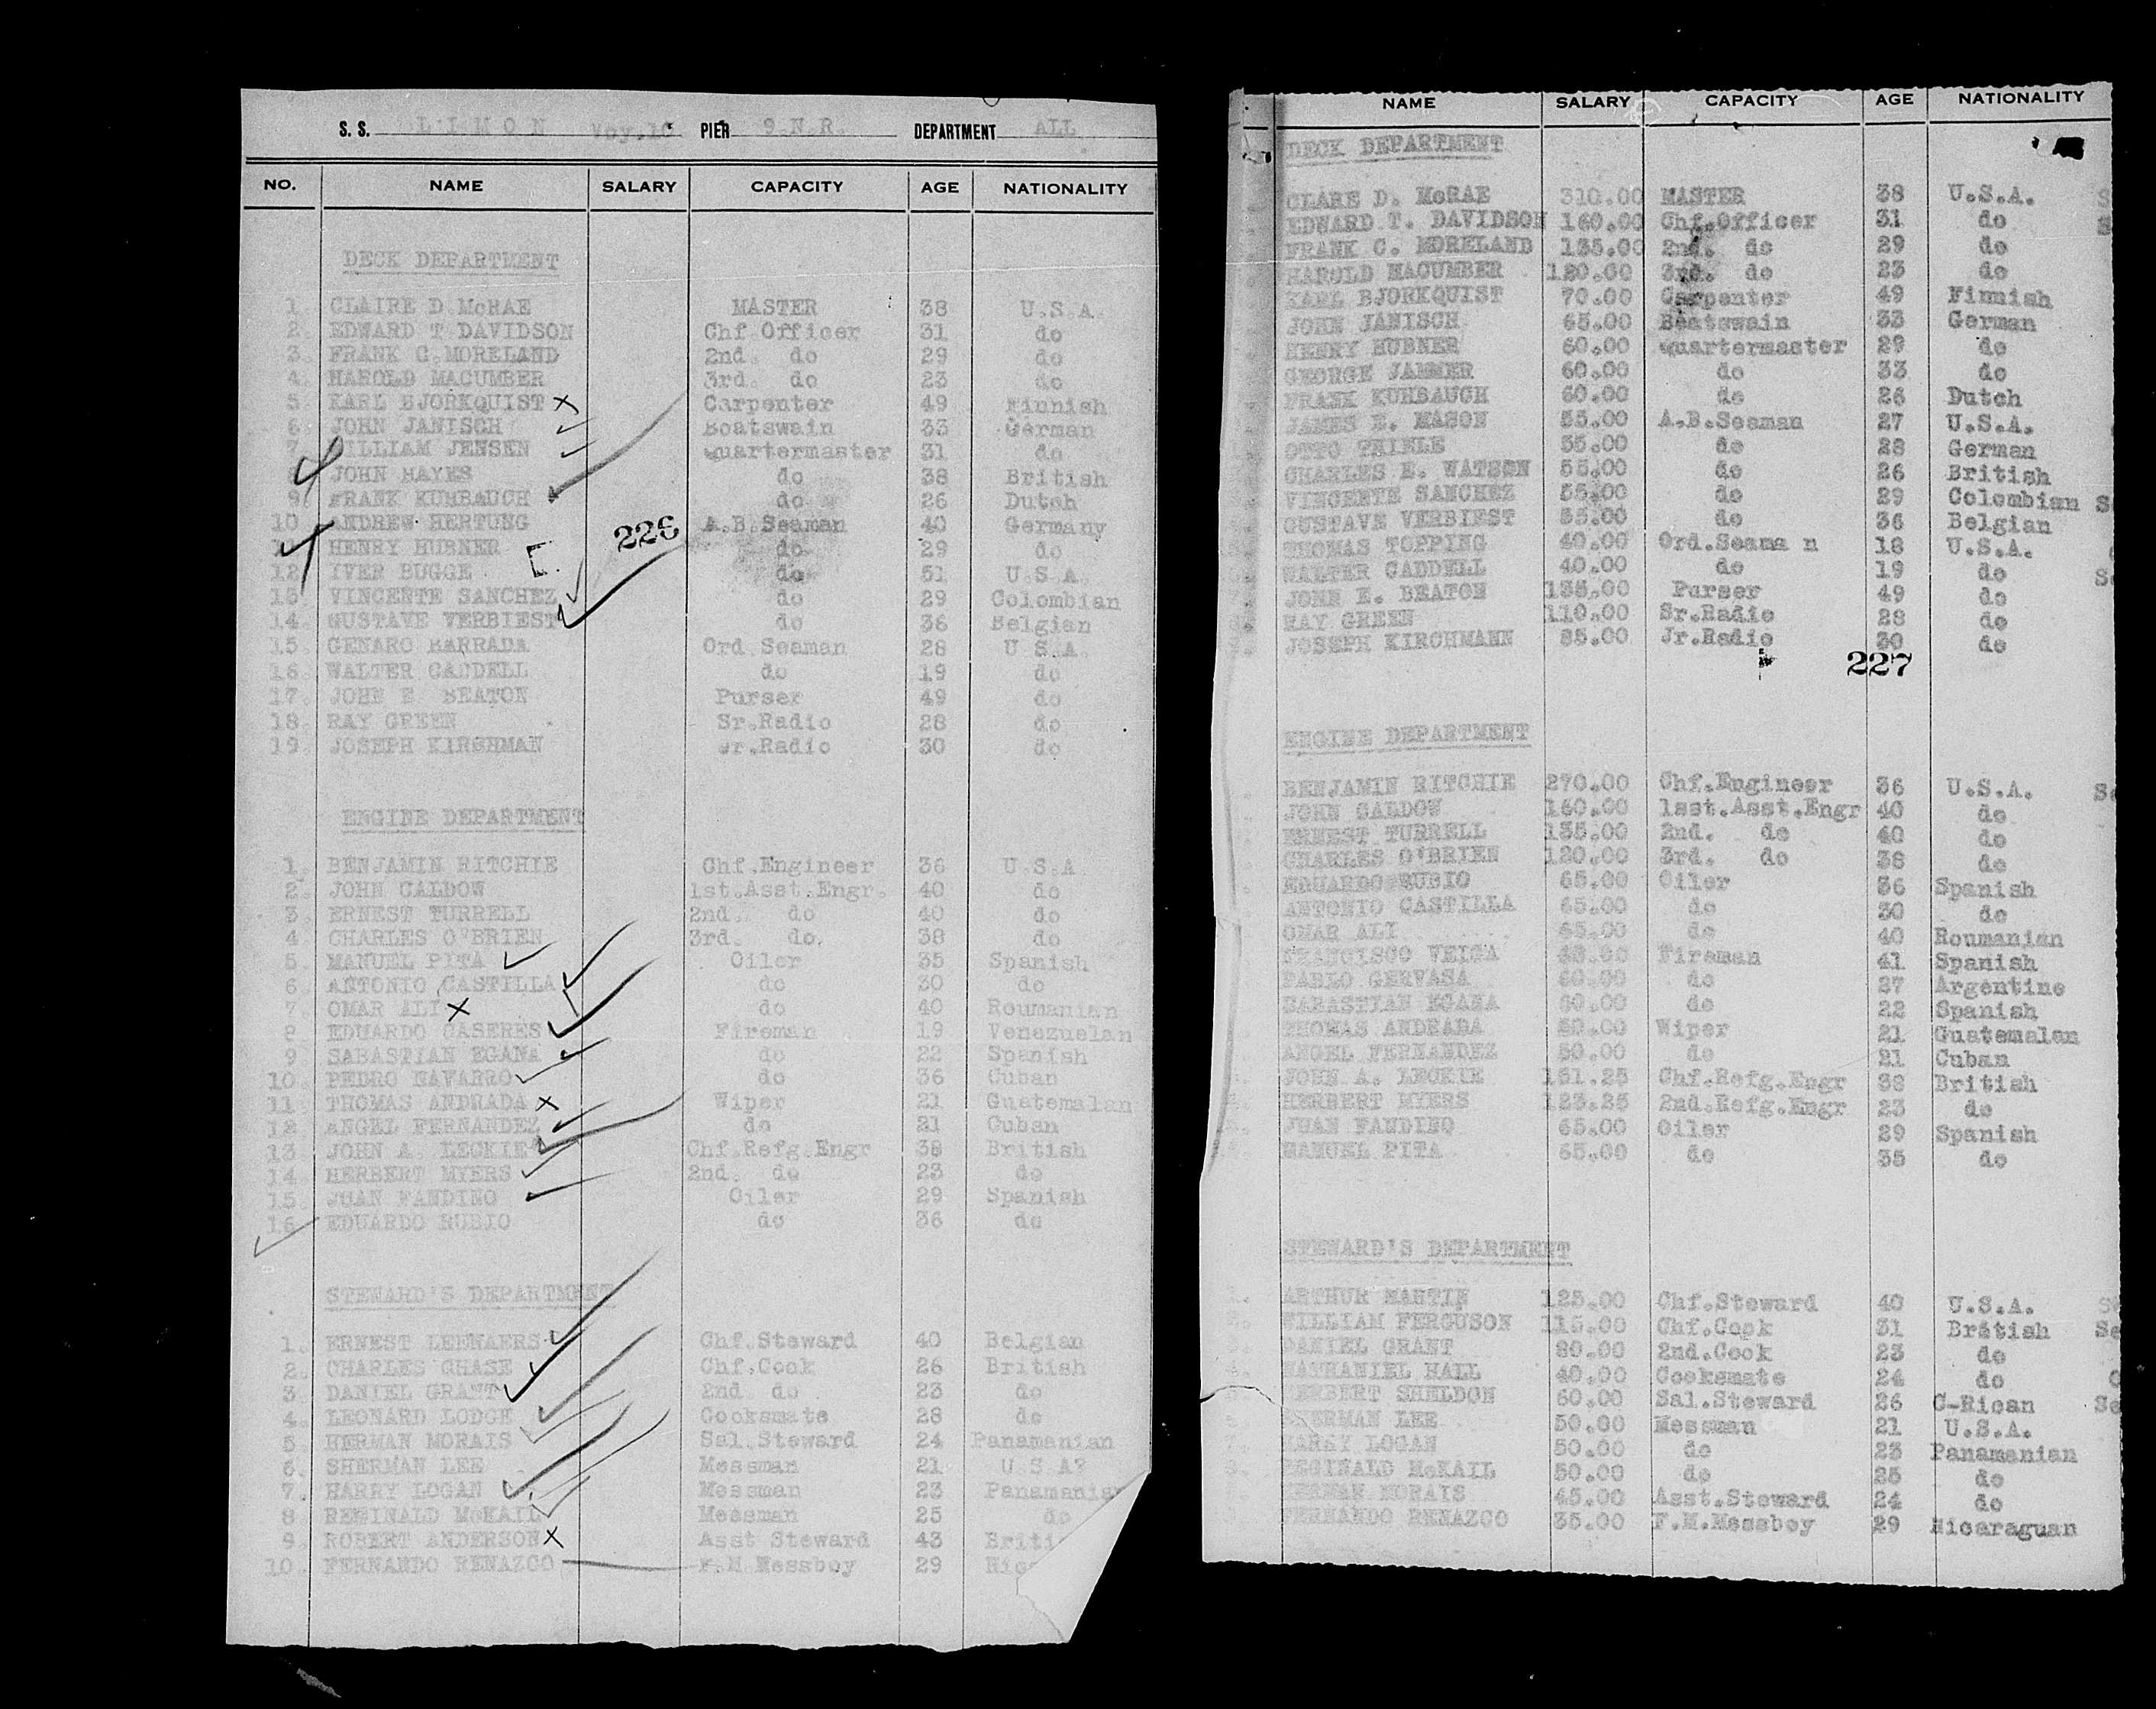 S. S. LIMON Voy.16 PIER 9 N.R. DEPARTMENT ALL
NO. NAME SALARY CAPACITY AGE NATIONALITY
DECK DEPARTMENT
1. CLAIRE D.McRAE MASTER 38 U.S.A.
2. EDWARD T DAVIDSON Chf.Officer 31 do
3. FRANK C.MORELAND 2nd. do 29 do
4. HAROLD MACUMBER 3rd. do 23 do
5. KARL BJORKQUIST x Carpenter 49 Finnish
6. JOHN JANISCH Boatswain 33 German
7. WILLIAM JENSEN Quartermaster 31 do
8. JOHN HAYES do 38 British
9. FRANK KUHBAUCH do 26 Dutch
10. ANDREW HERTUNG A.B.Seaman 40 Germany
226
11. HENRY HUBNER do 29 do
12. IVER BUGGE do 51 U.S.A.
13. VINCENTE SANCHEZ do 29 Colombian
14. GUSTAVE VERBIEST do 36 Belgian
15. GENARO BARRADA Ord.Seaman 28 U S.A.
16. WALTER CADDELL do 19 do
17. JOHN E. BEATON Purser 49 do
18. RAY GREEN Sr.Radio 28 do
19. JOSEPH KIRCHMAN Jr.Radio 30 do
ENGINE DEPARTMENT
1. BENJAMIN RITCHIE Chf.Engineer 36 U.S.A
2. JOHN CALDOW 1st.Asst.Engr. 40 do
3. ERNEST TURRELL 2nd. do 40 do
4. CHARLES O'BRIEN 3rd. do. 38 do
5. MANUEL PITA Oiler 35 Spanish
6. ANTONIO CASTILLA do 30 do
7. OMAR ALI x do 40 Roumanian
8. EDUARDO CASERES Fireman 19 Venezuelan
9. SABASTIAN EGANA do 22 Spanish
10. PEDRO NAVARRO do 36 Cuban
11. THOMAS ANDRADA x Wiper 21 Guatemalan
12. ANGEL FERNANDEZ do 21 Cuban
13. JOHN A. LECKIE Chf.Refg.Engr 38 British
14. HERBERT MYERS 2nd. do 23 do
15. JUAN FANDINO Oiler 29 Spanish
16. EDUARDO RUBIO do 36 do
STEWARD'S DEPARTMENT
1. ERNEST LEENAERS Chf.Steward 40 Belgian
2. CHARLES CHASE Chf.Cook 26 British
3. DANIEL GRANT 2nd do 23 do
4. LEONARD LODGE Cooksmate 28 do
5. HERMAN MORAIS Sal.Steward 24 Panamanian
6. SHERMAN LEE Messman 21 U.S A?
7. HARRY LOGAN Messman 23 Panamanian
8. REGINALD McKAIL Messman 25 do
9. ROBERT ANDERSON x Asst Steward 43 Briti
10. FERNANDO RENAZCO F.M.Messboy 29 Nic
NAME SALARY CAPACITY AGE NATIONALITY
DECK DEPARTMENT
CLARE D. McRAE 310.00 MASTER 38 U.S.A.
EDWARD T. DAVIDSON 160.00 Chf.Officer 31 do
FRANK C. MORELAND 135.00 2nd. do 29 do
HAROLD MACUMBER 120.00 3rd. do 23 do
KARL BJORKQUIST 70.00 Carpenter 49 Finnish
JOHN JANISCH 65.00 Boatswain 33 German
HENRY HUBNER 60.00 Quartermaster 29 do
GEORGE JAMMER 60.00 do 33 do
FRANK KUHBAUCH 60.00 do 26 Dutch
JAMES E. MASON 55.00 A.B.Seaman 27 U.S.A.
OTTO THIELE 55.00 do 28 German
CHARLES E. WATSON 55.00 do 26 British
VINCENTE SANCHEZ 55.00 do 29 Colombian
GUSTAVE VERBIEST 55.00 do 36 Belgian
THOMAS TOPPING 40.00 Ord.Seama n 18 U.S.A.
WALTER CADDELL 40.00 do 19 do
JOHN E. BEATON 135.00 Purser 49 do
RAY GREEN 110.00 Sr.Radio 28 do
JOSEPH KIRCHMANN 85.00 Jr.Radio 30 do
227
ENGINE DEPARTMENT
BENJAMIN RITCHIE 270.00 Chf.Engineer 36 U.S.A.
JOHN CALDOW 160.00 1sst.Asst.Engr 40 do
ERNEST TURRELL 135.00 2nd. do 40 do
CHARLES O'BRIEN 120.00 3rd. do 38 do
EDUARDO RUBIO 65.00 Oiler 36 Spanish
ANTONIO CASTILLA 65.00 do 30 do
OMAR ALI 65.00 do 40 Roumanian
FRANCISCO VEIGA 60.00 Fireman 41 Spanish
PABLO GERVASA 60.00 do 27 Argentine
SABASTIAN EGANA 60.00 do 22 Spanish
THOMAS ANDRADA 50.00 Wiper 21 Guatemalan
ANGEL FERNANDEZ 50.00 do 21 Cuban
JOHN A. LECKIE 151.25 Chf.Refg.Engr 38 British
HERBERT MYERS 123.25 2nd.Refg.Engr 23 do
JUAN FANDINO 65.00 Oiler 29 Spanish
MANUEL PITA 65.00 do 35 do
STEWARD'S DEPARTMENT
ARTHUR MARTIN 125.00 Chf.Steward 40 U.S.A.
WILLIAM FERGUSON 115.00 Chf.Cook 31 British
DANIEL GRANT 80.00 2nd.Cook 23 do
NATHANIEL HALL 40.00 Cooksmate 24 do
HERBERT SHELDON 60.00 Sal.Steward 26 C-Rican
SHERMAN LEE 50.00 Messman 21 U.S.A.
HARRY LOGAN 50.00 do 23 Panamanian
REGINALD McKAIL 50.00 do 25 do
HERMAN MORAIS 45.00 Asst.Steward 24 do
FERNANDO RENAZCO 35.00 F.M.Messboy 29 Nicaraguan